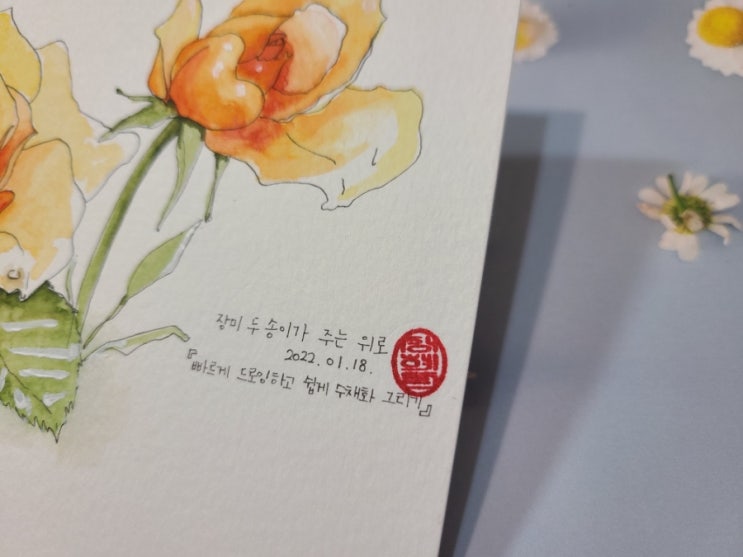 장미 두 송이가 주는 위로
2022.01.18.
『빠르게 드로잉하고 쉽게 수채화 그리기』